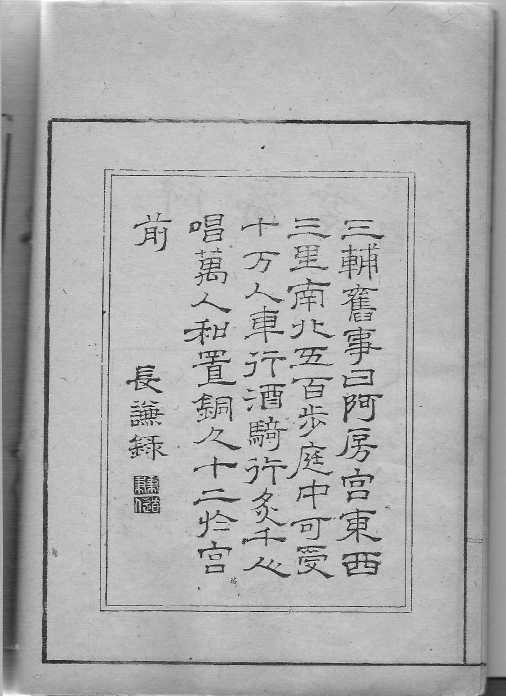 三輔舊事曰阿房宮東西
三里南北五百步庭中可受
十万人車行酒騎行炙千人
唱萬人和置銅人十二於宮
前
長謙録